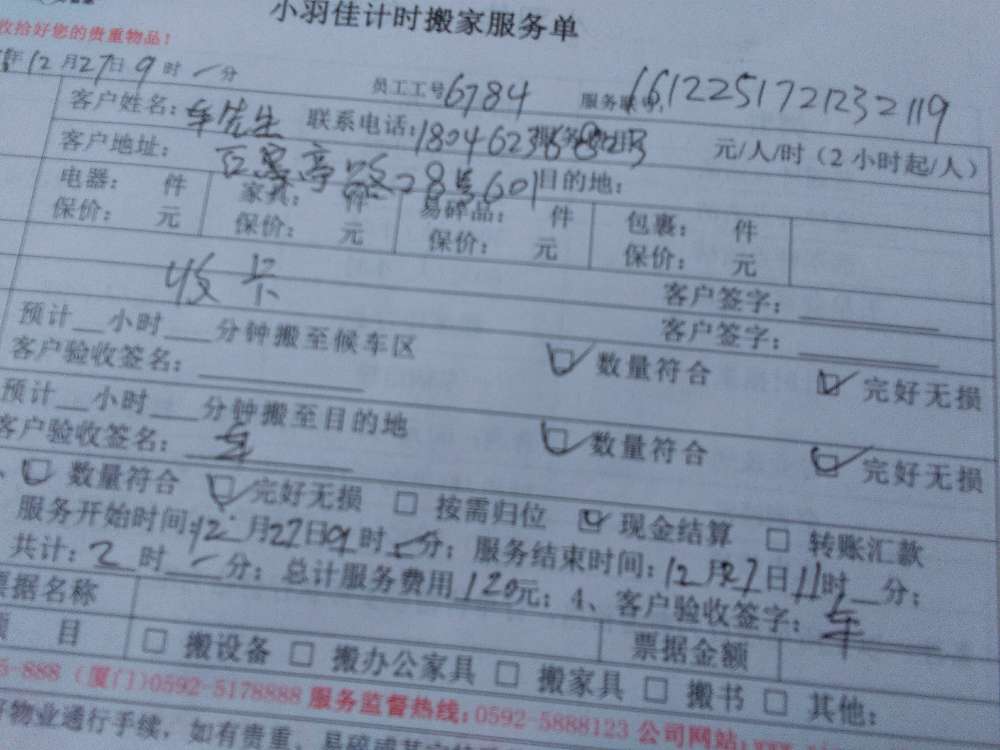 小羽佳计时搬家服务单
收拾好您的贵重物品！
年12月27日9时一分 员工工号6784 服务 1612251721232119
客户姓名：车先生 联系电话： 元/人/时（2小时起/人）
客户地址： 路28号601 目的地：
电器： 件 家具： 件 易碎品： 件 包裹： 件
保价： 元 保价： 元 保价： 元 保价： 元
收卡 客户签字：
预计__小时__分钟搬至候车区 客户签字：
客户验收签名： ☑ 数量符合 ☑ 完好无损
预计__小时__分钟搬至目的地
客户验收签名：车 ☑ 数量符合 ☑ 完好无损
☑ 数量符合 ☑ 完好无损 □ 按需归位 ☑ 现金结算 □ 转账汇款
服务开始时间：12月27日9时一分；服务结束时间：12月27日11时__分；
共计：2时一分；总计服务费用120元；4、客户验收签字：车
票据名称 票据金额
项 目 □ 搬设备 □ 搬办公家具 □ 搬家具 □ 搬书 □ 其他：
5-888（厦门）0592-5178888 服务监督热线：0592-5888123 公司网站：
物业通行手续，如有贵重、易碎